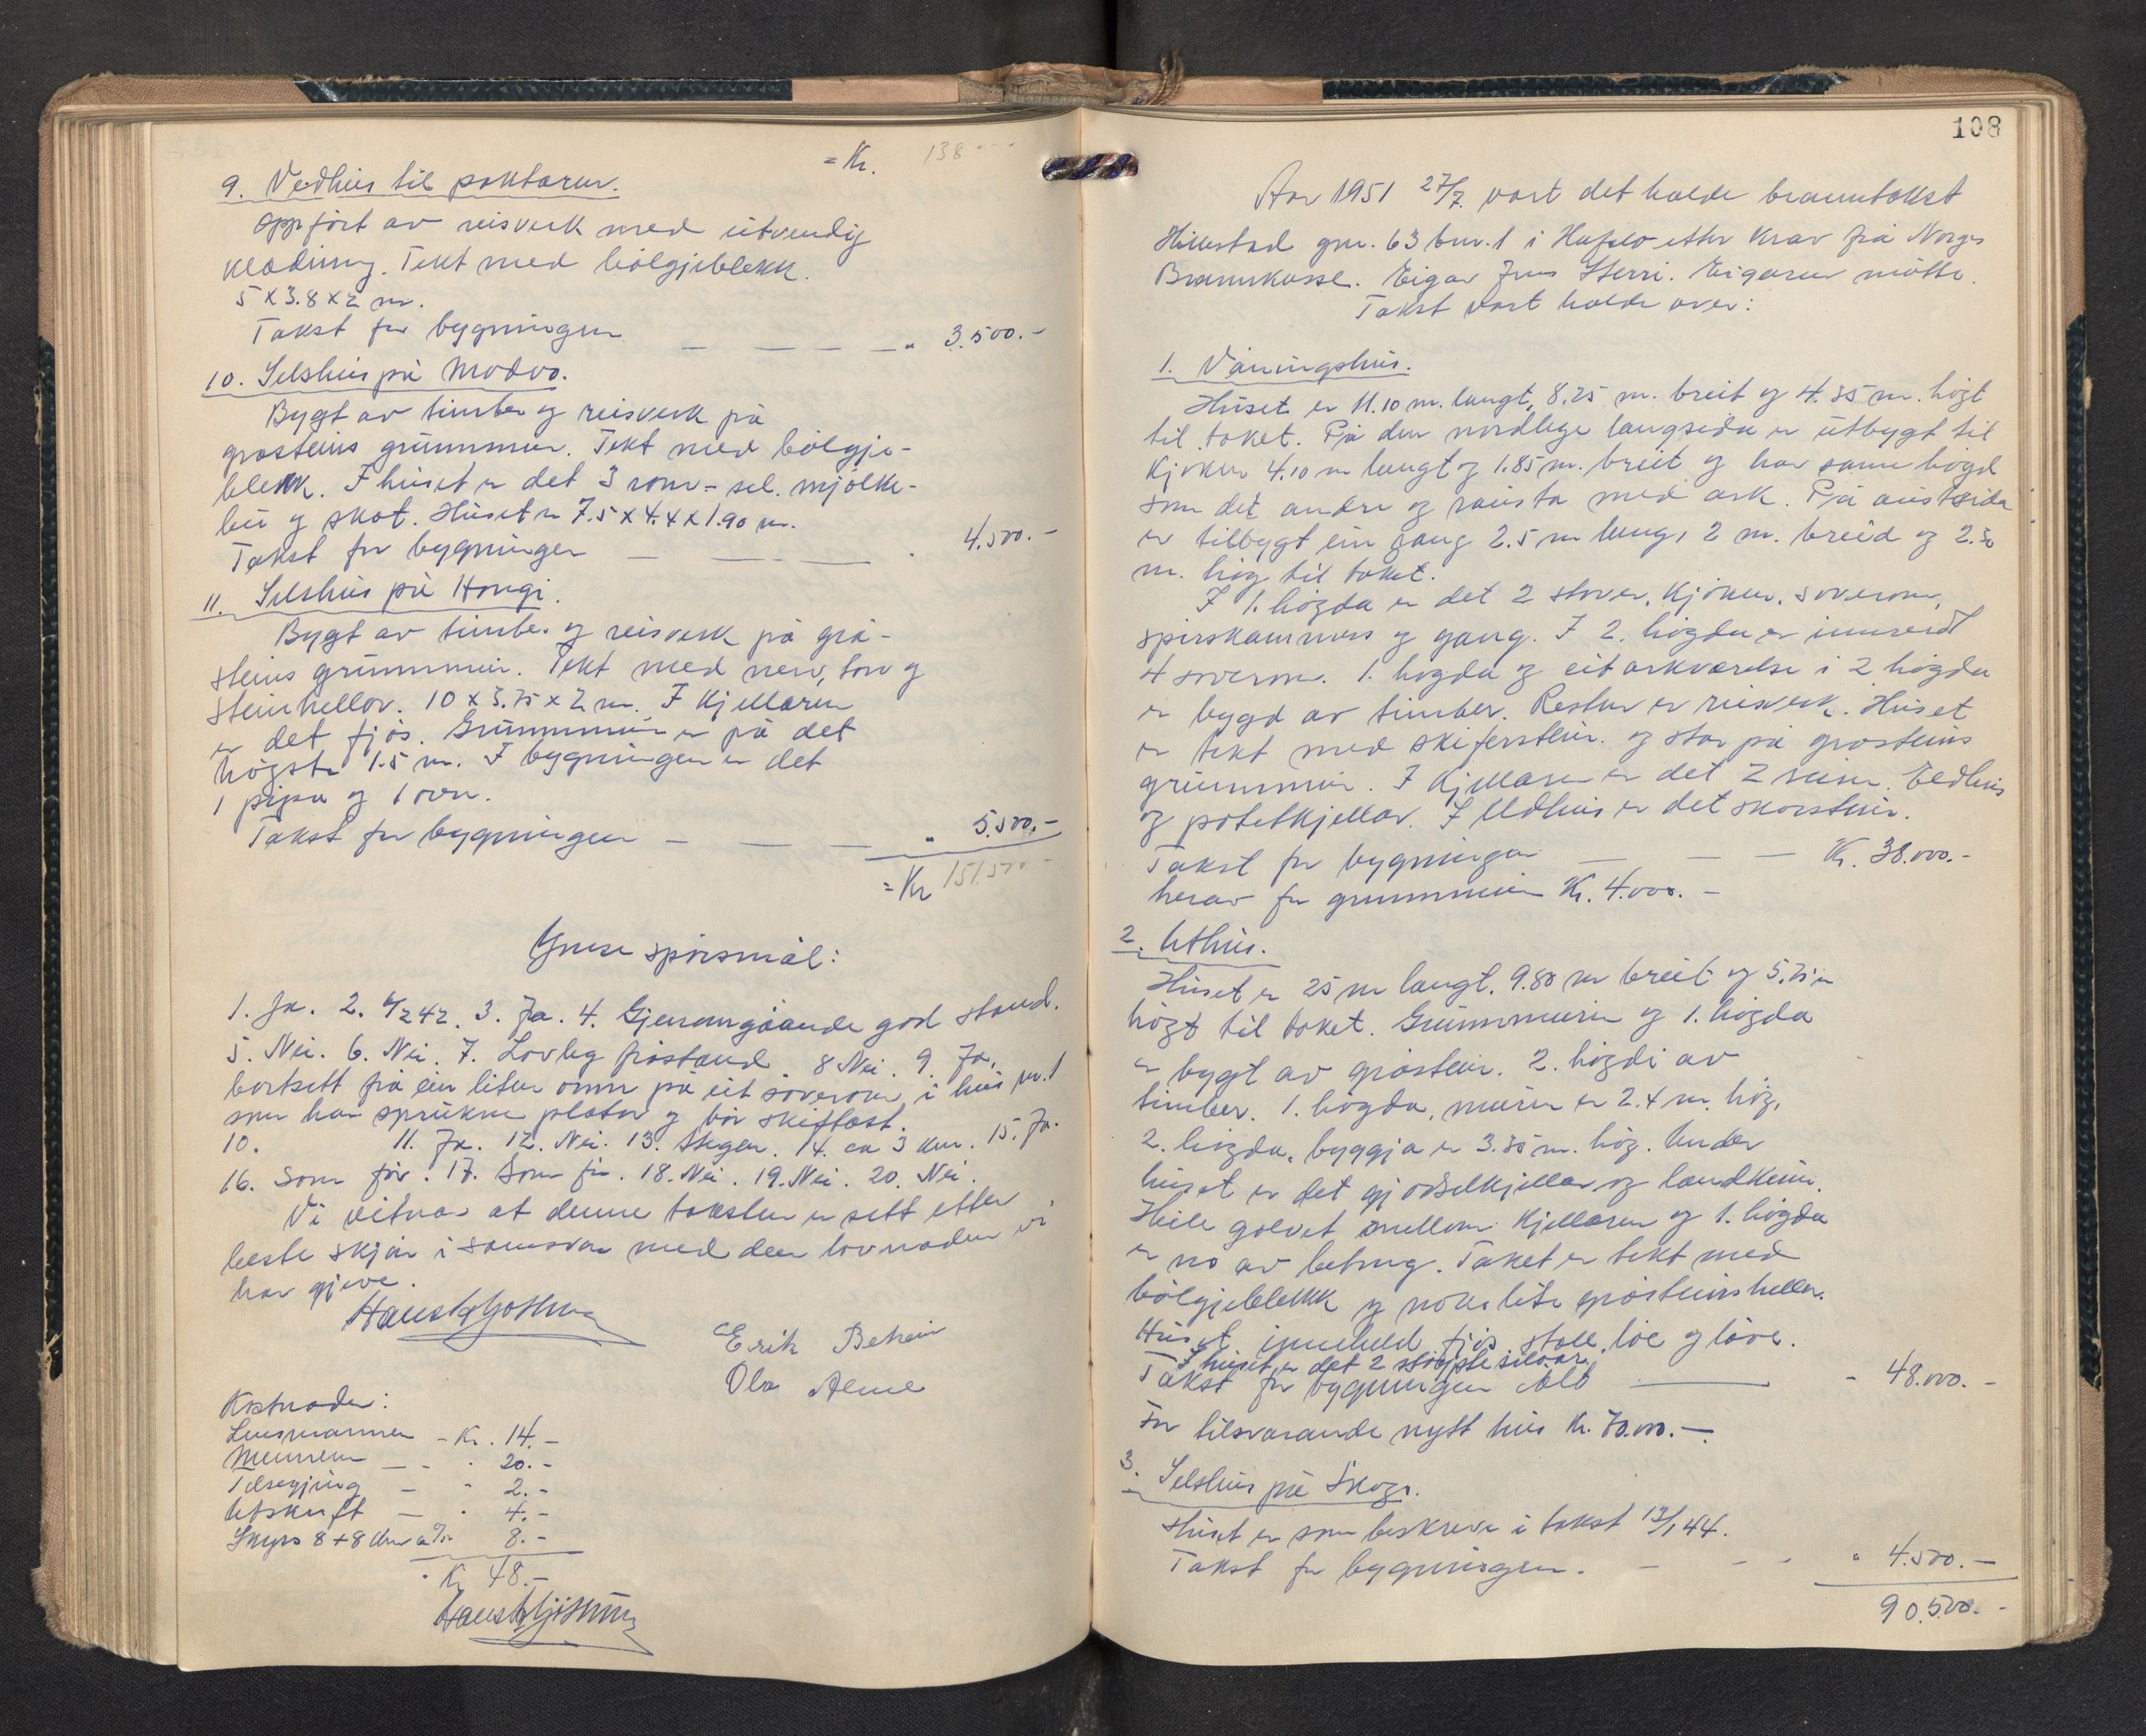 = Kr. 138
9. Vedhus til paktaren.
Oppført av reisverk med utvendig
kledning. Tekt med bølgjeblekk.
5 x 3.8 x 2 m.
Takst for bygningen — — — — " 3.500.-
10. Selshus på Modvo.
Bygt av timber og reisverk på
gråsteins grunnmur. Tekt med bølgje-
blekk. I huset er det 3 rom - sel. mjølke-
bu og skot. Huset er 7.5 x 4.4 x 1.90 m.
Takst for bygningen — — — " 4.500.-
11. Selshus på Haugi.
Bygt av timber og reisverk på grå-
steins grunnmur. Tekt med never, torv og
steinhellor. 10 x 3.75 x 2 m. I kjellaren
er det fjøs. Grunnmuren er på det
høgste 1.5 m. I bygningen er det
1 pipa og 1 ovn.
Takst for bygningen — — — " 5.500.-
= Kr 151.500 -
Ymse spørsmål:
1. Ja. 2. 6/2 42. 3. Ja. 4. Gjenomgåande god stand.
5. Nei. 6. Nei. 7. Lovleg fråstand. 8 Nei. 9. Ja,
bortsett frå ein liten omn på eit soverom i hus nr. 1
som har sprukne plator og bør skiftast.
10. 11. Ja. 12. Nei. 13. Stegen. 14. ca 3 km. 15. Ja.
16. Som før. 17. Som før. 18. Nei. 19. Nei. 20. Nei.
Vi vitnar at denne taksten er sett etter
beste skjøn i samsvar med den lovnaden vi
har gjeve.
Erik Bekein
Ola Alme
Kostnader:
Lensmannen - Kr. 14.-
Mennene — - " 20.-
Tilsegjing — " 2.-
Utskrift — " 4.-
Skyss 8 + 8 km 8.-
Kr 48.-
108
Aar 1951 27/7. vart det halde branntakst
Hillestad gnr. 63 bnr. 1 i Hafslo etter krav frå Norges
Brannkasse. Eigar Jens Sterri. Eigaren møtte.
Takst vart halde over:
1. Våningshus.
Huset er 11.10 m. langt, 8.25 m. breit og 4.35 m. høgt
til taket. På den nordlege langsida er utbygt til
kjøken 4.10 m langt og 1.85 m. breit og har same høgd
som det andre og rausta med ark. På austsida
er tilbygt ein gang 2.5 m lang, 2 m. breid og 2.30
m. høg til taket.
I 1. høgda er det 2 stover, kjøken, soverom,
spiskammers og gang. I 2. høgda er innreidt
4 soverom. 1. høgda og eit arkværelse i 2 høgda
er bygd av timber. Resten er reisverk. Huset
er tekt med skiferstein og star på gråsteins
grunnmur. I kjellaren er det 2 reium. Eldhus
og potetkjellar. I eldhus er det skorstein.
Takst for bygningen — — — Kr. 38.000.-
herav for grunnmuren Kr. 4.000.-
2. Uthus.
Huset er 25 m langt, 9.80 m breit og 5.75 m
høgt til taket. Grunnmuren og 1. høgda
er bygt av gråstein. 2. høgdi av
timber. 1. høgda, muren er 2.4 m. høg,
2. høgda, byggja er 3.35 m. høg. Under
huset er det gjødselkjellar og landkum.
Heile golvet mellom kjellaren og 1. høgda
er no av betong. Taket er tekt med
bølgjeblekk og noko lite gråsteinshellor.
Huset inneheld fjøs, stall, løe og låve.
I huset er det 2 støypte siloar.
Takst for bygningen i alt — - 48.000.-
For tilsvarande nytt hus kr. 70.000.-
3. Selshus på Skogr.
Huset er som beskreve i takst 13/1 44.
Takst for bygningen. - - - " 4.500.-
90.500.-